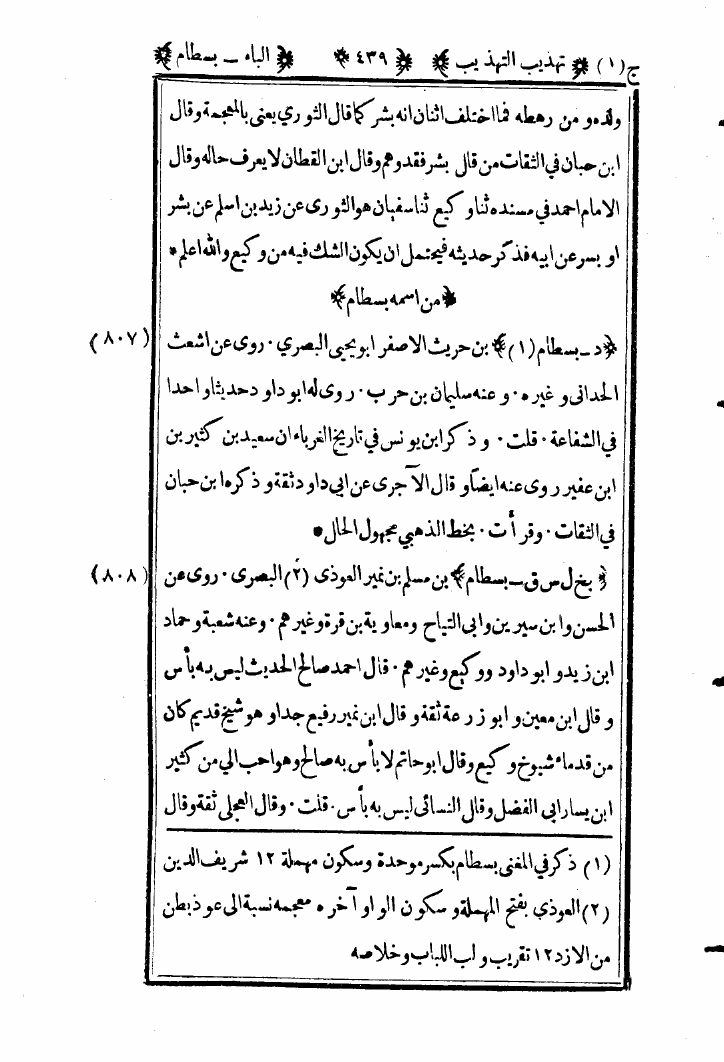 ج(١) ﴿ تهذيب التهذيب ﴾ ﴿ ٤٣٩ ﴾ ﴿ الباء ـ بسطام ﴾
ولده و من رهطه فما اختلف اثنان انه بشر كما قال الثوري يعنى بالمعجمة وقال
ابن حبان في الثقات من قال بشر فقد وهم وقال ابن القطان لا يعرف حاله وقال
الامام احمد في مسنده ثنا وكيع ثنا سفيان هو الثورى عن زيد بن اسلم عن بشر
او بسر عن ابيه فذكر حديثه فيحتمل ان يكون الشك فيه من وكيع والله اعلم *
﴿ من اسمه بسطام ﴾
﴿ د ـ بسطام (١) ﴾ بن حريث الاصفر ابو يحيى البصري ٠ روى عن اشعث (٨٠٧)
الحدانى و غيره ٠ و عنه سليمان بن حرب ٠ روى له ابو داود حديثا واحدا
في الشفاعة ٠ قلت ٠ و ذكر ابن يونس في تاريخ الغرباء ان سعيد بن كثير بن
ابن عفير روى عنه ايضاً و قال الآجرى عن ابى داود ثقة و ذكره ابن حبان
في الثقات ٠ وقرأت ٠ بخط الذهبي مجهول الحال *
﴿ بخ ل س ق ـ بسطام ﴾ بن مسلم بن نمير العوذى (٢) البصرى ٠ روى عن (٨٠٨)
الحسن و ابن سيرين وابى التياح ومعاوية بن قرة وغيرهم ٠ وعنه شعبة و حماد
ابن زيد و ابو داود ووكيع وغيرهم ٠ قال احمد صالح الحديث ليس به بأس
و قال ابن معين و ابو زرعة ثقة و قال ابن نمير رفيع جدا و هو شيخ قديم كان
من قدماء شيوخ وكيع وقال ابو حاتم لا بأس به صالح وهو احب الي من كثير
ابن يسار ابى الفضل وقال النسائى ليس به بأس ٠ قلت ٠ وقال العجلى ثقة وقال
(١) ذكر في المغنى بسطام بكسر موحدة وسكون مهملة ١٢ شريف الدين
(٢) العوذي بفتح المهملة و سكون الواو آخره معجمه نسبة الى عوذ بطن
من الازد ١٢ تقريب و لب اللباب و خلاصه